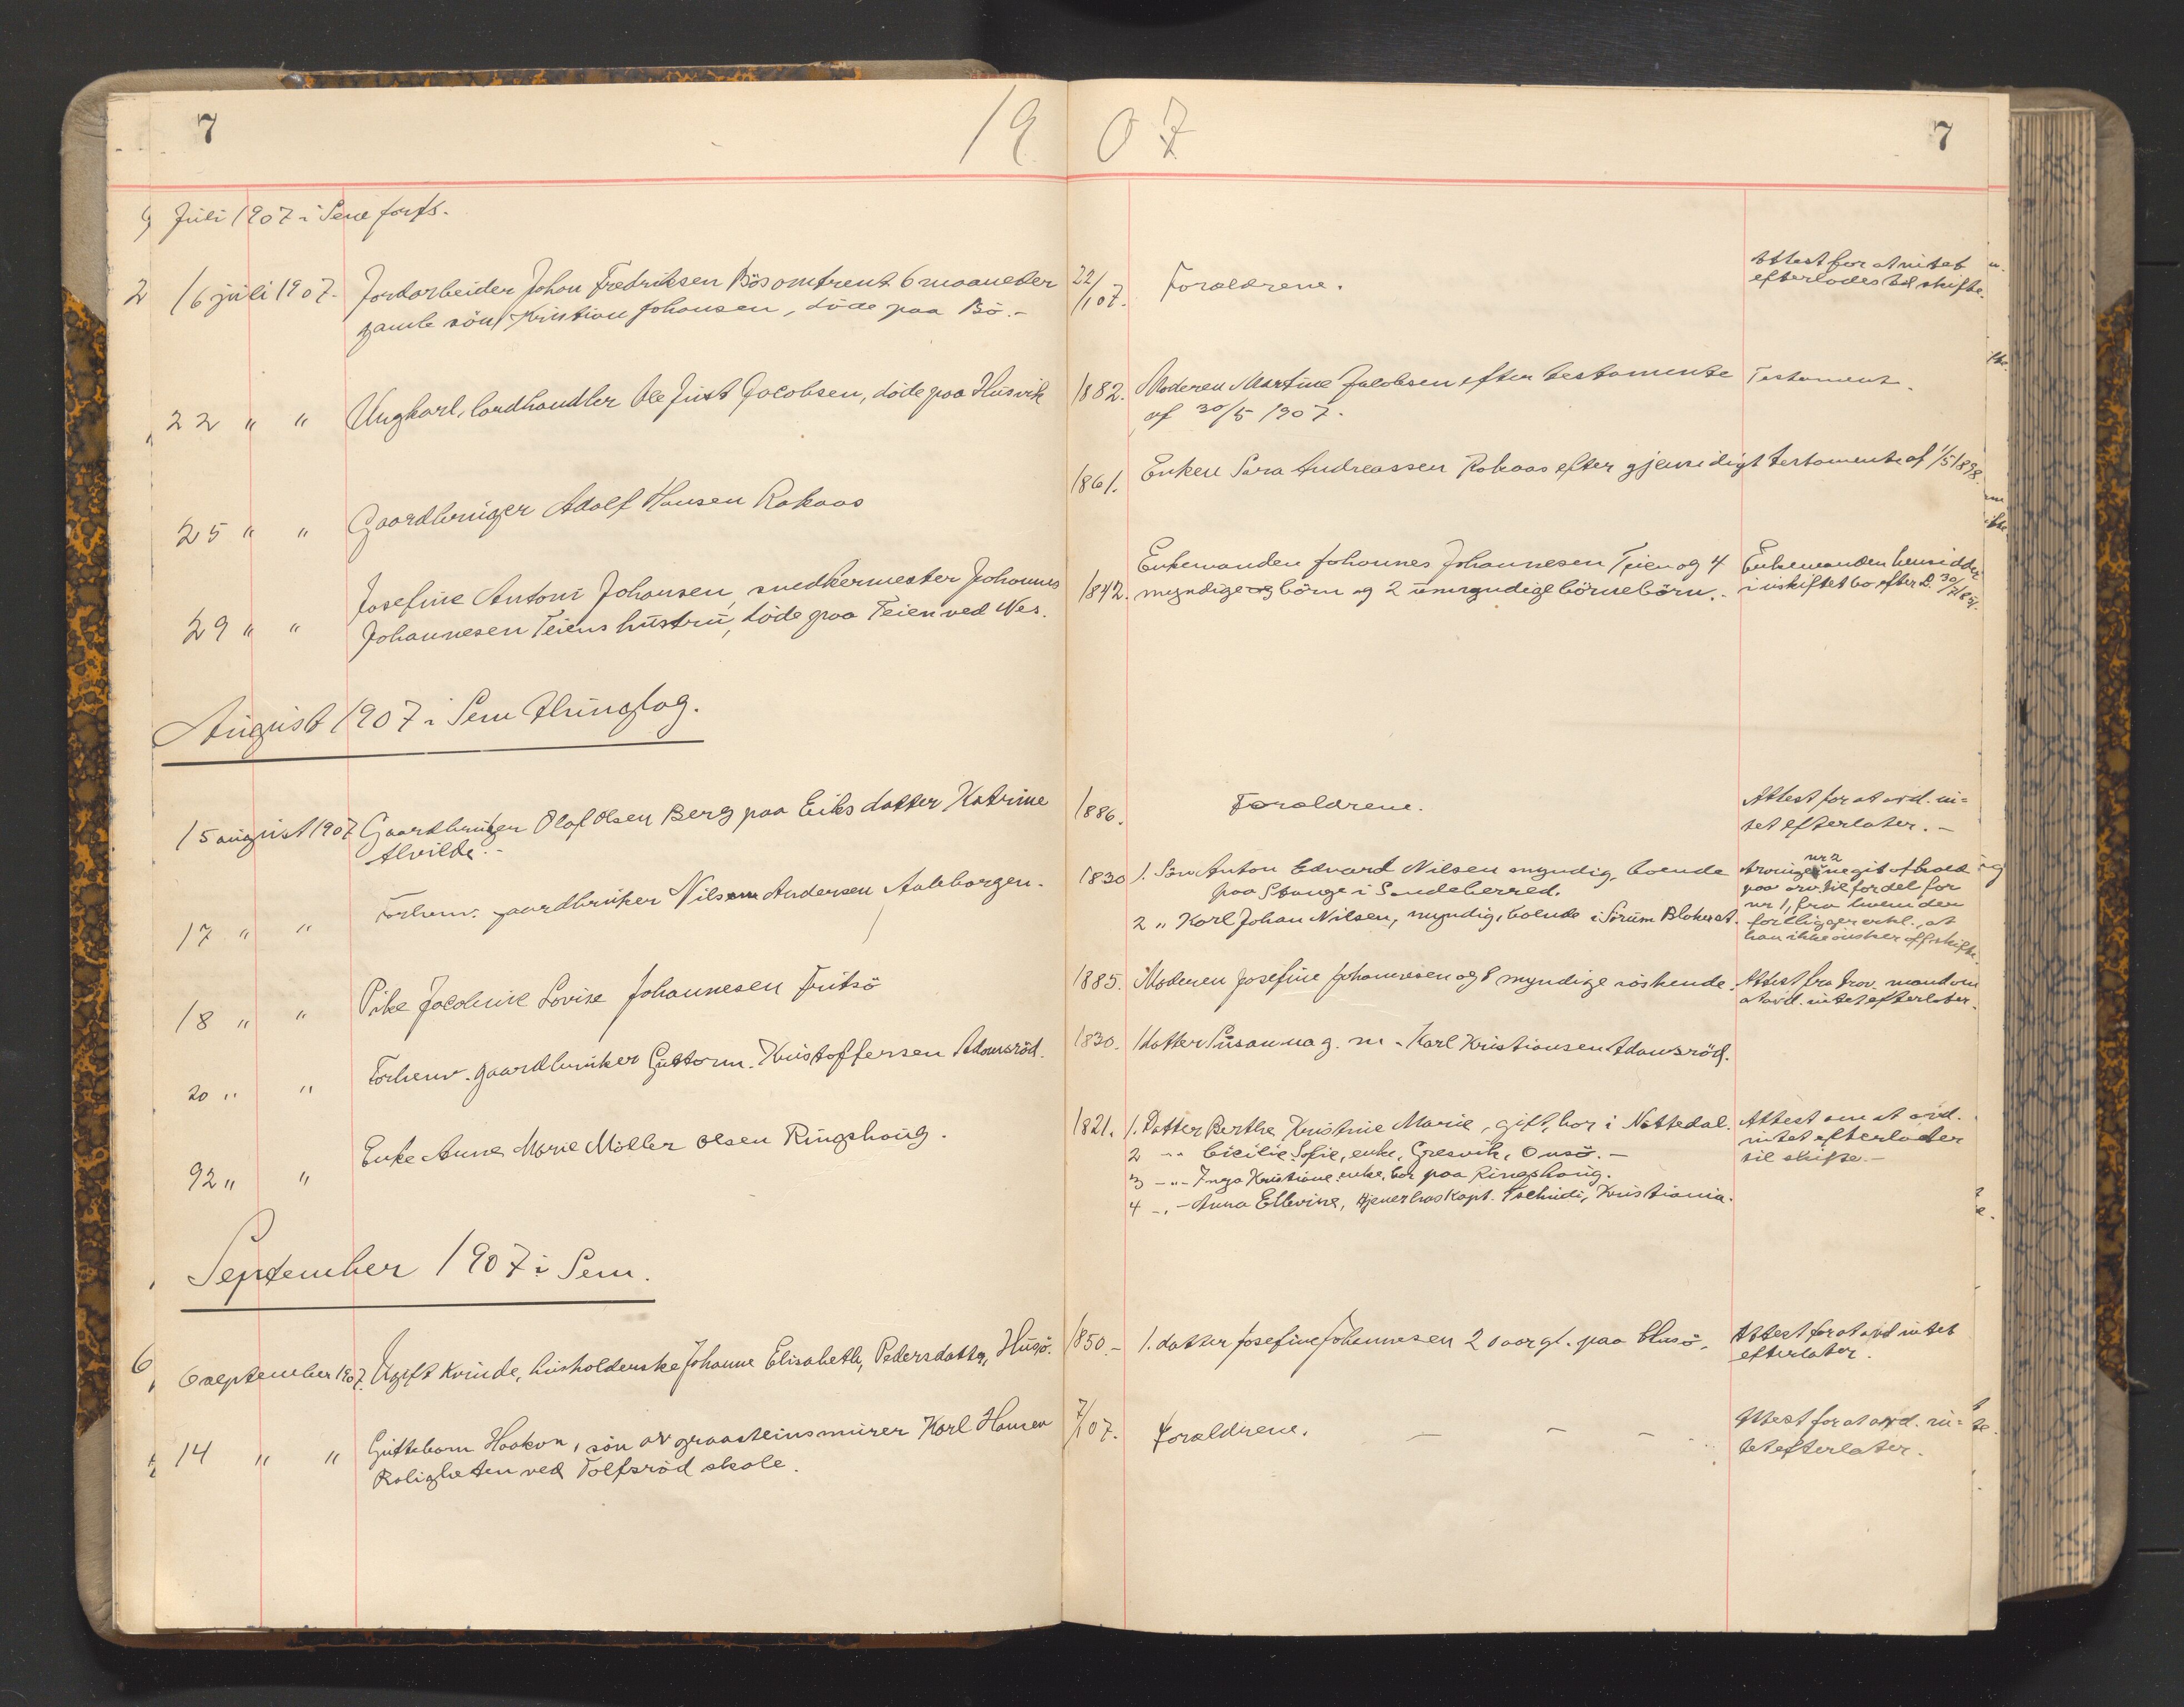 7
19 07
7
Juli 1907 i Sem forts.
16 juli 1907. Jordarbeider Johan Fredriksen Bös omtrent 6 maaneder 22/1 07. Forældrene. Attest for at intet
gamle sön Kristian Johansen, döde paa Bö.- efterlodes til skifte.
22 " " Ungkarl, landhandler Ole Just Jacobsen, döde paa Husvik 1882. Moderen Martine Jacobsen efter testamente Testament.
af 30/5 1907.
25 " " Gaardbruger Adolf Hansen Rakaas 1861. Enken Sara Andreassen Rakaas efter gjensidigt testamente af 1/5 1898.
29 " " Josefine Antoni Johansen, snedkermester Johannes 1842. Enkemanden Johannes Johannesen Teien og 4 Enkemanden hensidder
Johannesen Teiens hustru, döde paa Teien ved Nes. myndige og börn og 2 umyndige börnebörn.- i uskiftet bo efter L. 30/7 1851.
August 1907 i Sem Thinglag.
15 august 1907 Gaardbruger Olaf Olsen Berg paa Eiks datter Katrine 1886. Forældrene. Attest for at avd. in=
Alvilde.- tet efterlater.-
17 " " Forhenv. gaardbruker Nils Andersen Aaleborgen. 1830 1. Sön Anton Edvard Nilsen myndig, boende
paa Stange i Sandeherred.
2 " Karl Johan Nilsen, myndig, boende i Sörum Blakerst.
nr 2
Arvingene git afkald
paa arv til fordel for
nr 1, fra hvem der
forligger erkl., at
han ikke önsker off. skifte.
18 " " Pike Jacobine Lovise Johannesen Fritsö 1885. Moderen Josefine Johannesen og 8 myndige söskende. Attest fra prov. mand om
at avd. intet efterlater.
20 " " Forhenv. gaardbruker Guttorm Kristoffersen Adamsröd. 1830. 1 datter Susanna g. m. Karl Kristiansen Adamsröd.
92 " " Enke Anne Marie Möller Olsen Ringshaug. 1821. 1. Datter Berthe Kristine Marie, gift, bor i Nøttedal. Attest om at avd.
2 -"- Cicilie Sofie, enke, Gresvik, Onsö.- intet efterlader
3 -"- Inga Kristiane enke, bor paa Ringshaug. til skifte.-
4 -"- Anna Ellevine, tjener hos Kapt. Tschudi, Kristiania.
September 1907 i Sem.
6 september 1907. Ugift kvinde, husholderske Johanne Elisabeth, Pedersdatter, Husö. 1850.- 1. datter Josefine Johannesen 20 aar gl. paa Husö. Attest for at avd intet
efterlater.
14 " " Guttebarn Haakon, sön av graasteinsmurer Karl Hansen 7/1 07. Forældrene. Attest for at avd. in=
Roligheten ved Tolfsröd skole. tet efterlater.